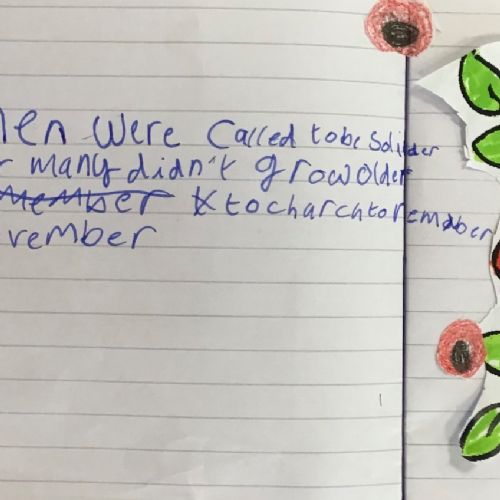 men were called to be Soilder
many didn't grow older
to charch to remember
vember